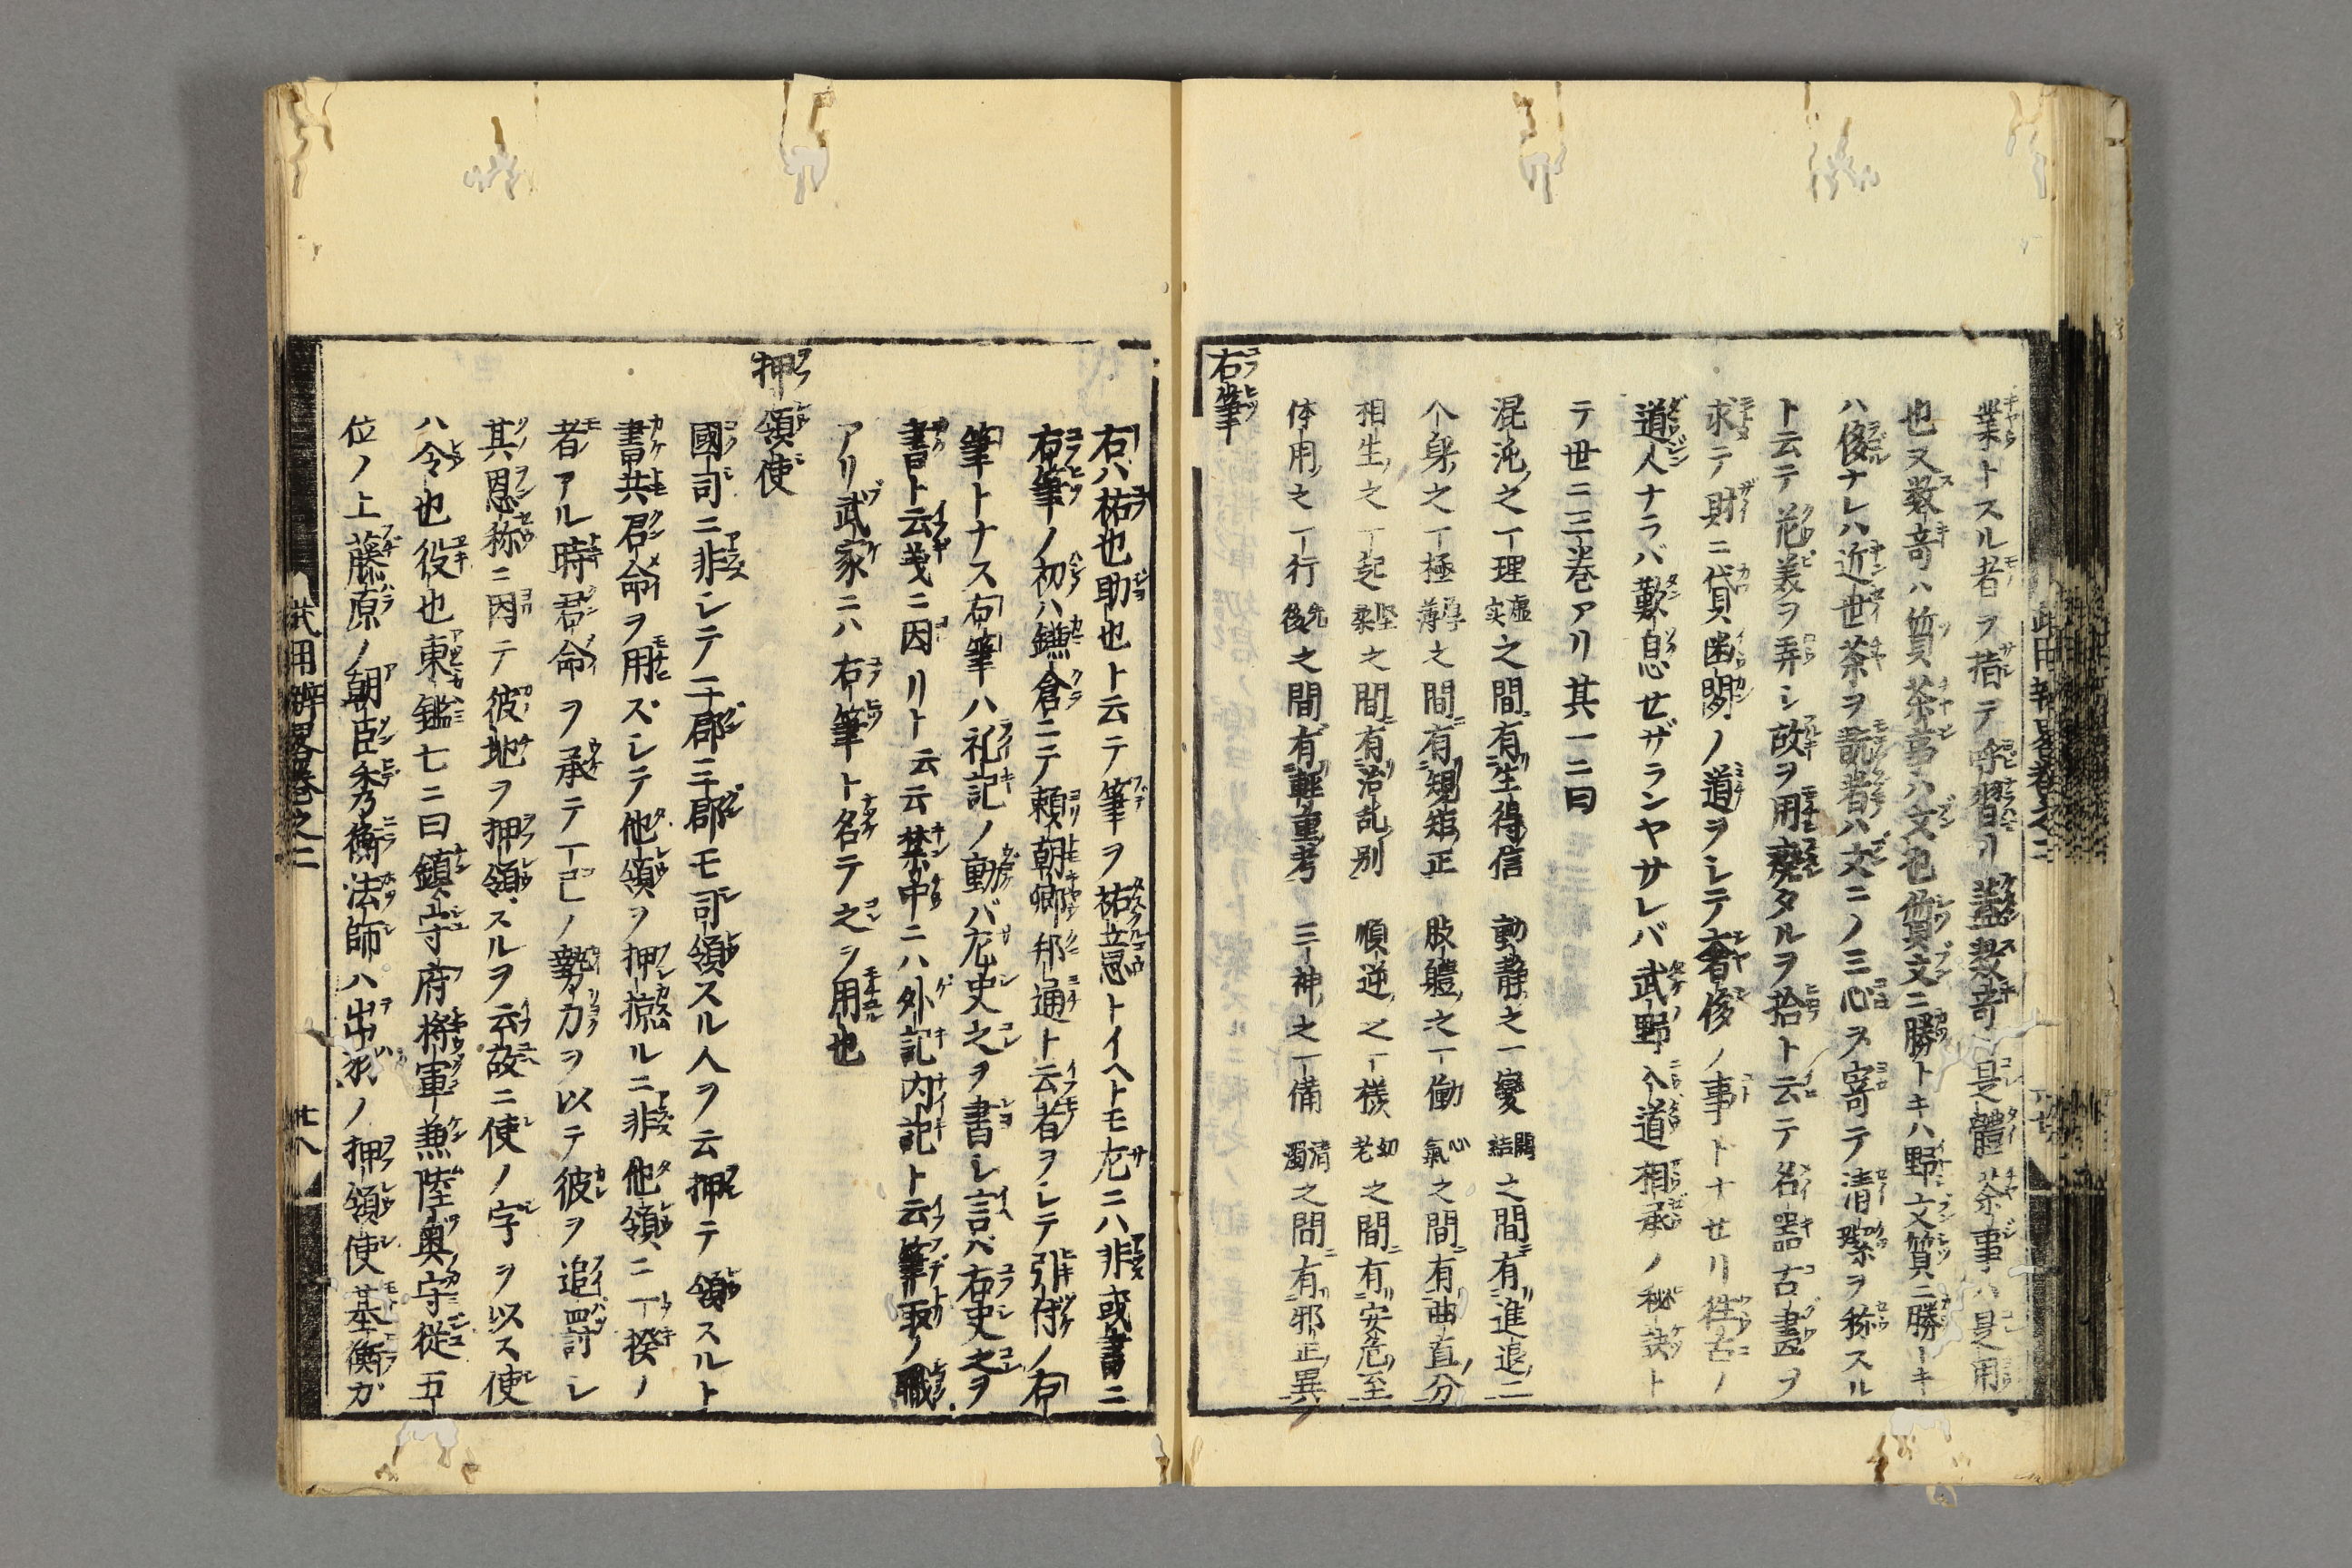 業トスル者ヲ指テ 習リ蓋数竒是體茶事ハ是用
也又数竒ハ質茶事ハ文也質文ニ勝トキハ野文質ニ勝トキ
ハ俊ナレハ近世茶ヲ翫者ハ文ニノミ心ヲ寄テ清潔ヲ称スル
ト云テ花美ヲ弄シ故ヲ用廃タルヲ拾ト云テ名器古畫ヲ
求テ財ニ貸函閙ノ道ヲシテ奢侈ノ事トナセリ徃古ノ
道人ナラバ歎息セザランヤサレバ武野入道相承ノ秘訣ト
テ世ニ三巻アリ其一ニ曰
混沌之一理虚实之間有生得信 動静之一變開結之間有進退二
个身之一極厚薄之間有規矩正 肢體之一働心氣之間有曲直分
相生之一起堅柔之間有治乱別 順逆之一様幼老之間有安危至
体用之一行先後之間有軽重考 三神之一備清濁之間有邪正異
右筆
右ハ祐也助也ト云テ筆ヲ祐意トイヘトモ左ニハ非或書ニ
右筆ノ初ハ鎌倉ニテ頼朝卿邦通ト云者ヲシテ引付ノ右
筆トナス右筆ハ礼記ノ動バ左史之ヲ書シ言バ右史之ヲ
書ト云義ニ因リト云云禁中ニハ外記内記ト云筆取ノ職
アリ武家ニハ右筆ト名テ之ヲ用也
押領使
國司ニ非シテ二郡三郡モ司領スル人ヲ云押テ領スルト
書共君命ヲ用ズシテ他領ヲ押掠ルニ非他領ニ一揆ノ
者アル時君命ヲ承テ一己ノ勢力ヲ以テ彼ヲ追罰シ
其恩称ニ因テ彼地ヲ押領スルヲ云故ニ使ノ字ヲ以ス使
ハ令也役也東鑑七ニ曰鎮守府將軍兼陸奥守従五
位ノ上藤原ノ朝臣秀衡法師ハ出羽ノ押領使基衡ガ
試用辨畧巻之二 廿八